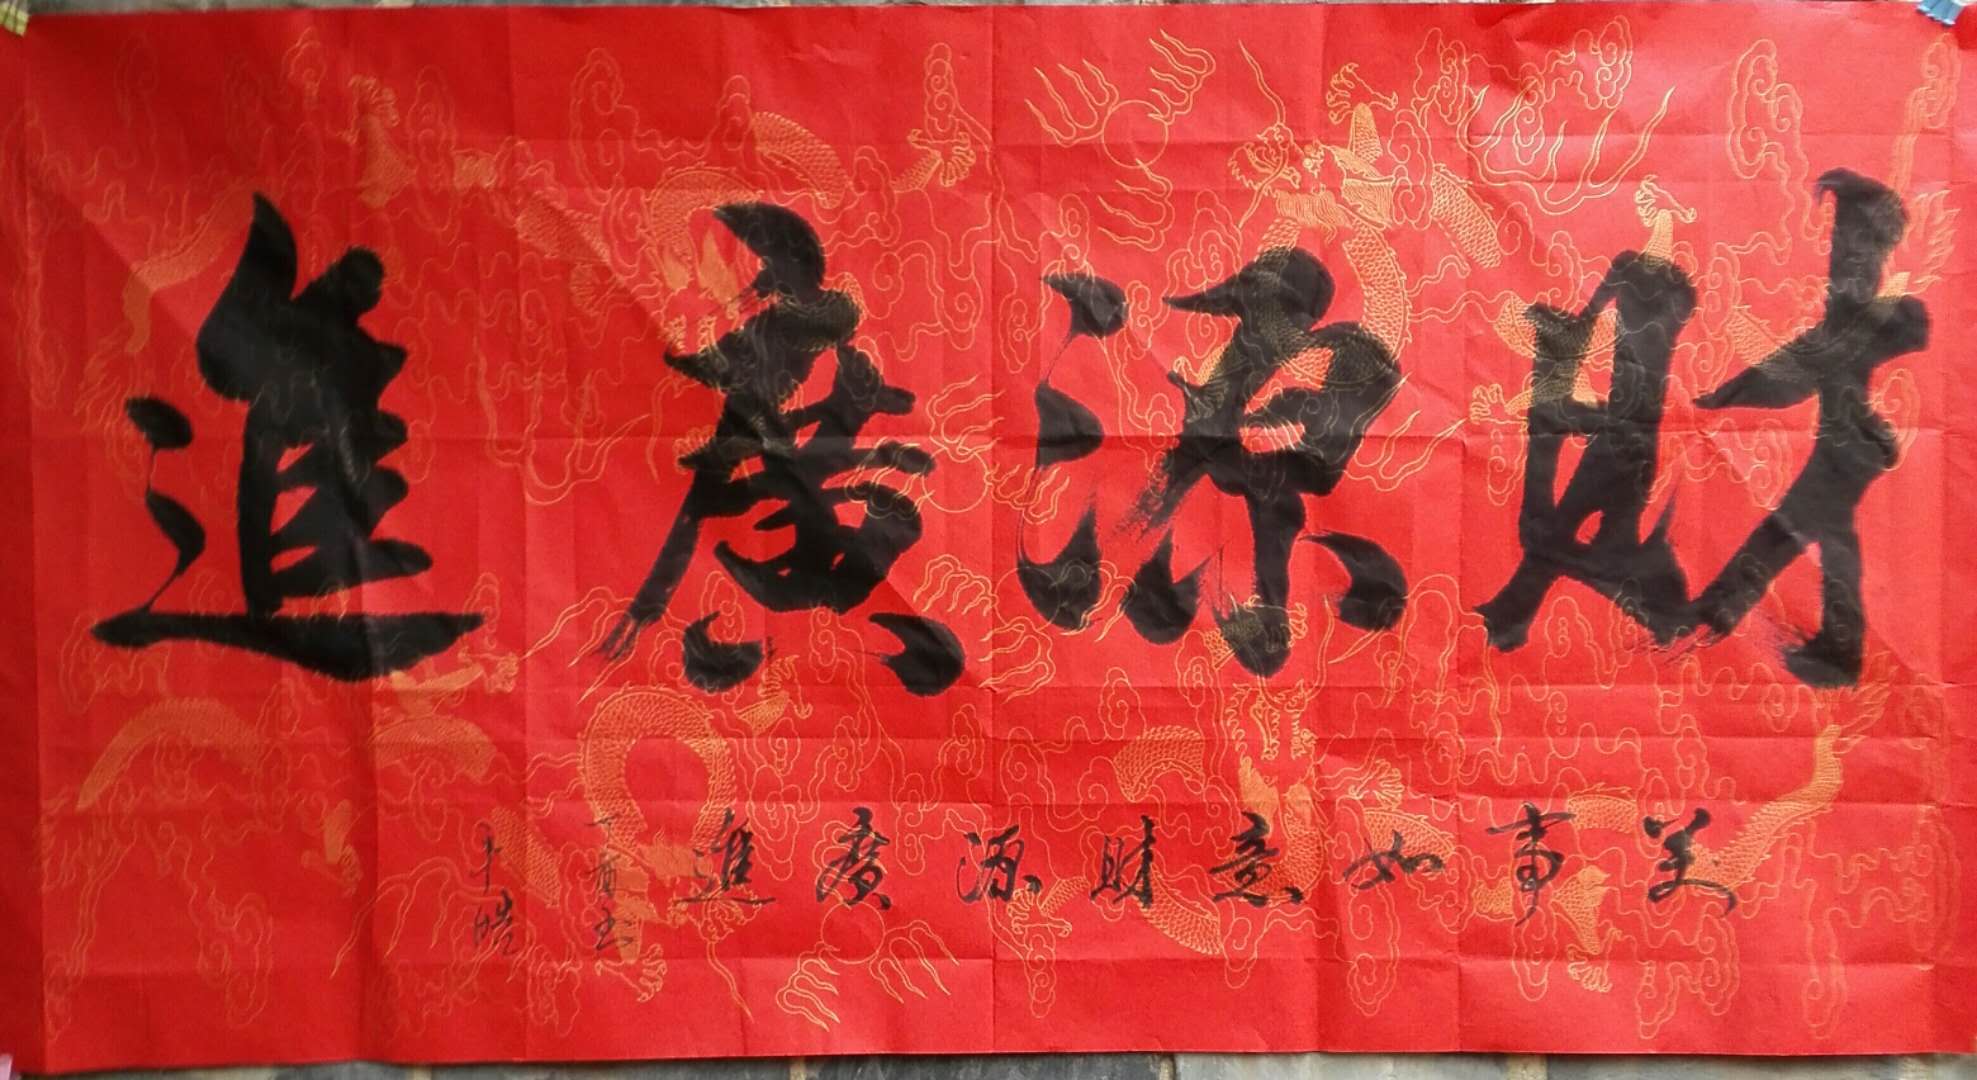 財源廣進
美事如意財源廣進
丁酉